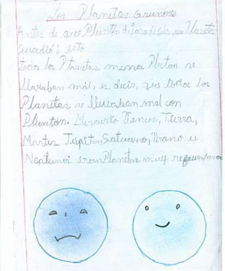 Los Planetas Gruñones
Antes de que Plutón dejara de ser un Planeta
sucedió esto
todos los Planetas menos Plutón se
llevaban mal, es decir, que todos los
Planetas se llevaban mal con
Plutón. Mercurio Venus, Tierra,
Marte Júpiter Saturno, Urano y
Neptuno eran Planetas muy